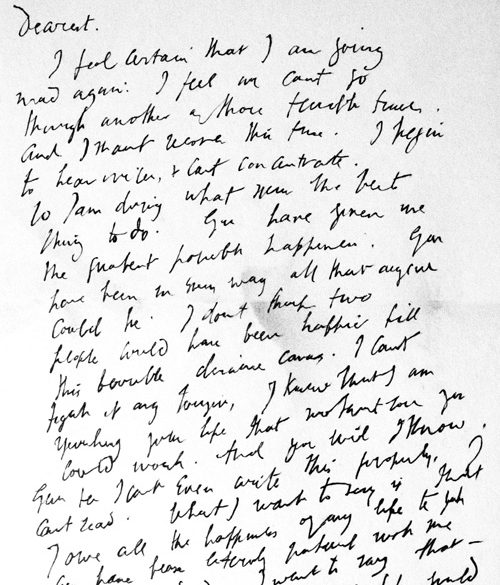 Dearest.
I feel certain that I am going
mad again: I feel we cant go
through another of those terrible times.
And I shant recover this time. I begin
to hear voices, & cant concentrate.
So I am doing what seems the best
thing to do. You have given me
the greatest possible happiness. You
have been in every way all that anyone
could be. I dont think two
people could have been happier till
this terrible disease came. I cant
fight it any longer, I know that I am
spoiling your life, that without me you
could work. And you will I know.
You see I cant even write this properly. I
cant read. What I want to say is that
I owe all the happiness of my life to you
have been entirely patient with me
want to say that —
would